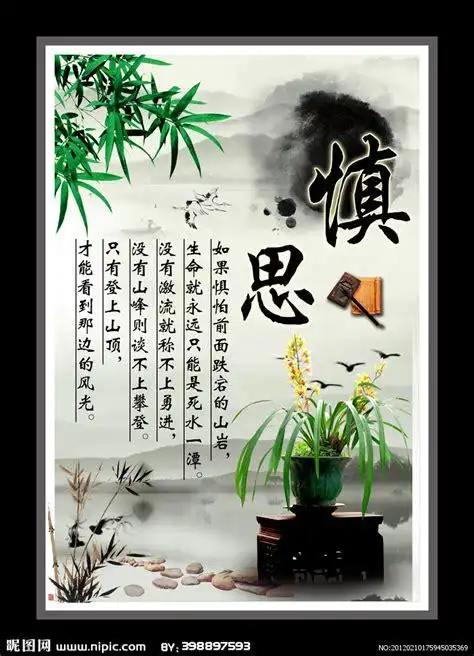 慎思
如果惧怕前面跌宕的山岩，
生命就永远只能是死水一潭。
没有激流就称不上勇进，
没有山峰则谈不上攀登。
只有登上山顶，
才能看到那边的风光。
昵图网 www.nipic.com BY: 398897593 NO:20120210175945035369